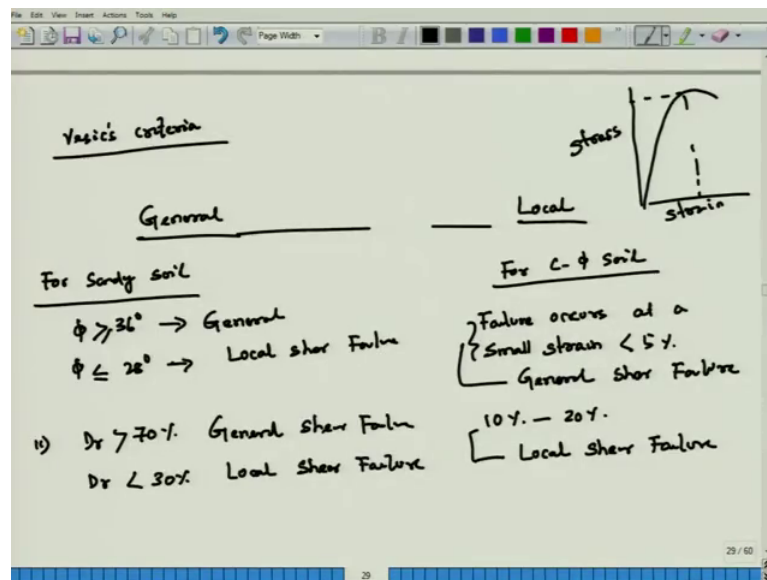 File Edit View Insert Actions Tools Help
Page Width
B I
Vesic's criteria
stress
strain
General
Local
For Sandy soil
ϕ ⩾ 36° → General
ϕ ≤ 28° → Local sher Failure
ii) Dr > 70%. General Shear Failure
Dr < 30% Local Shear Failure
For C-ϕ Soil
Failure occurs at a
Small strain < 5%.
General Sher Failure
10%. — 20%.
Local Shear Failure
29 / 60
29